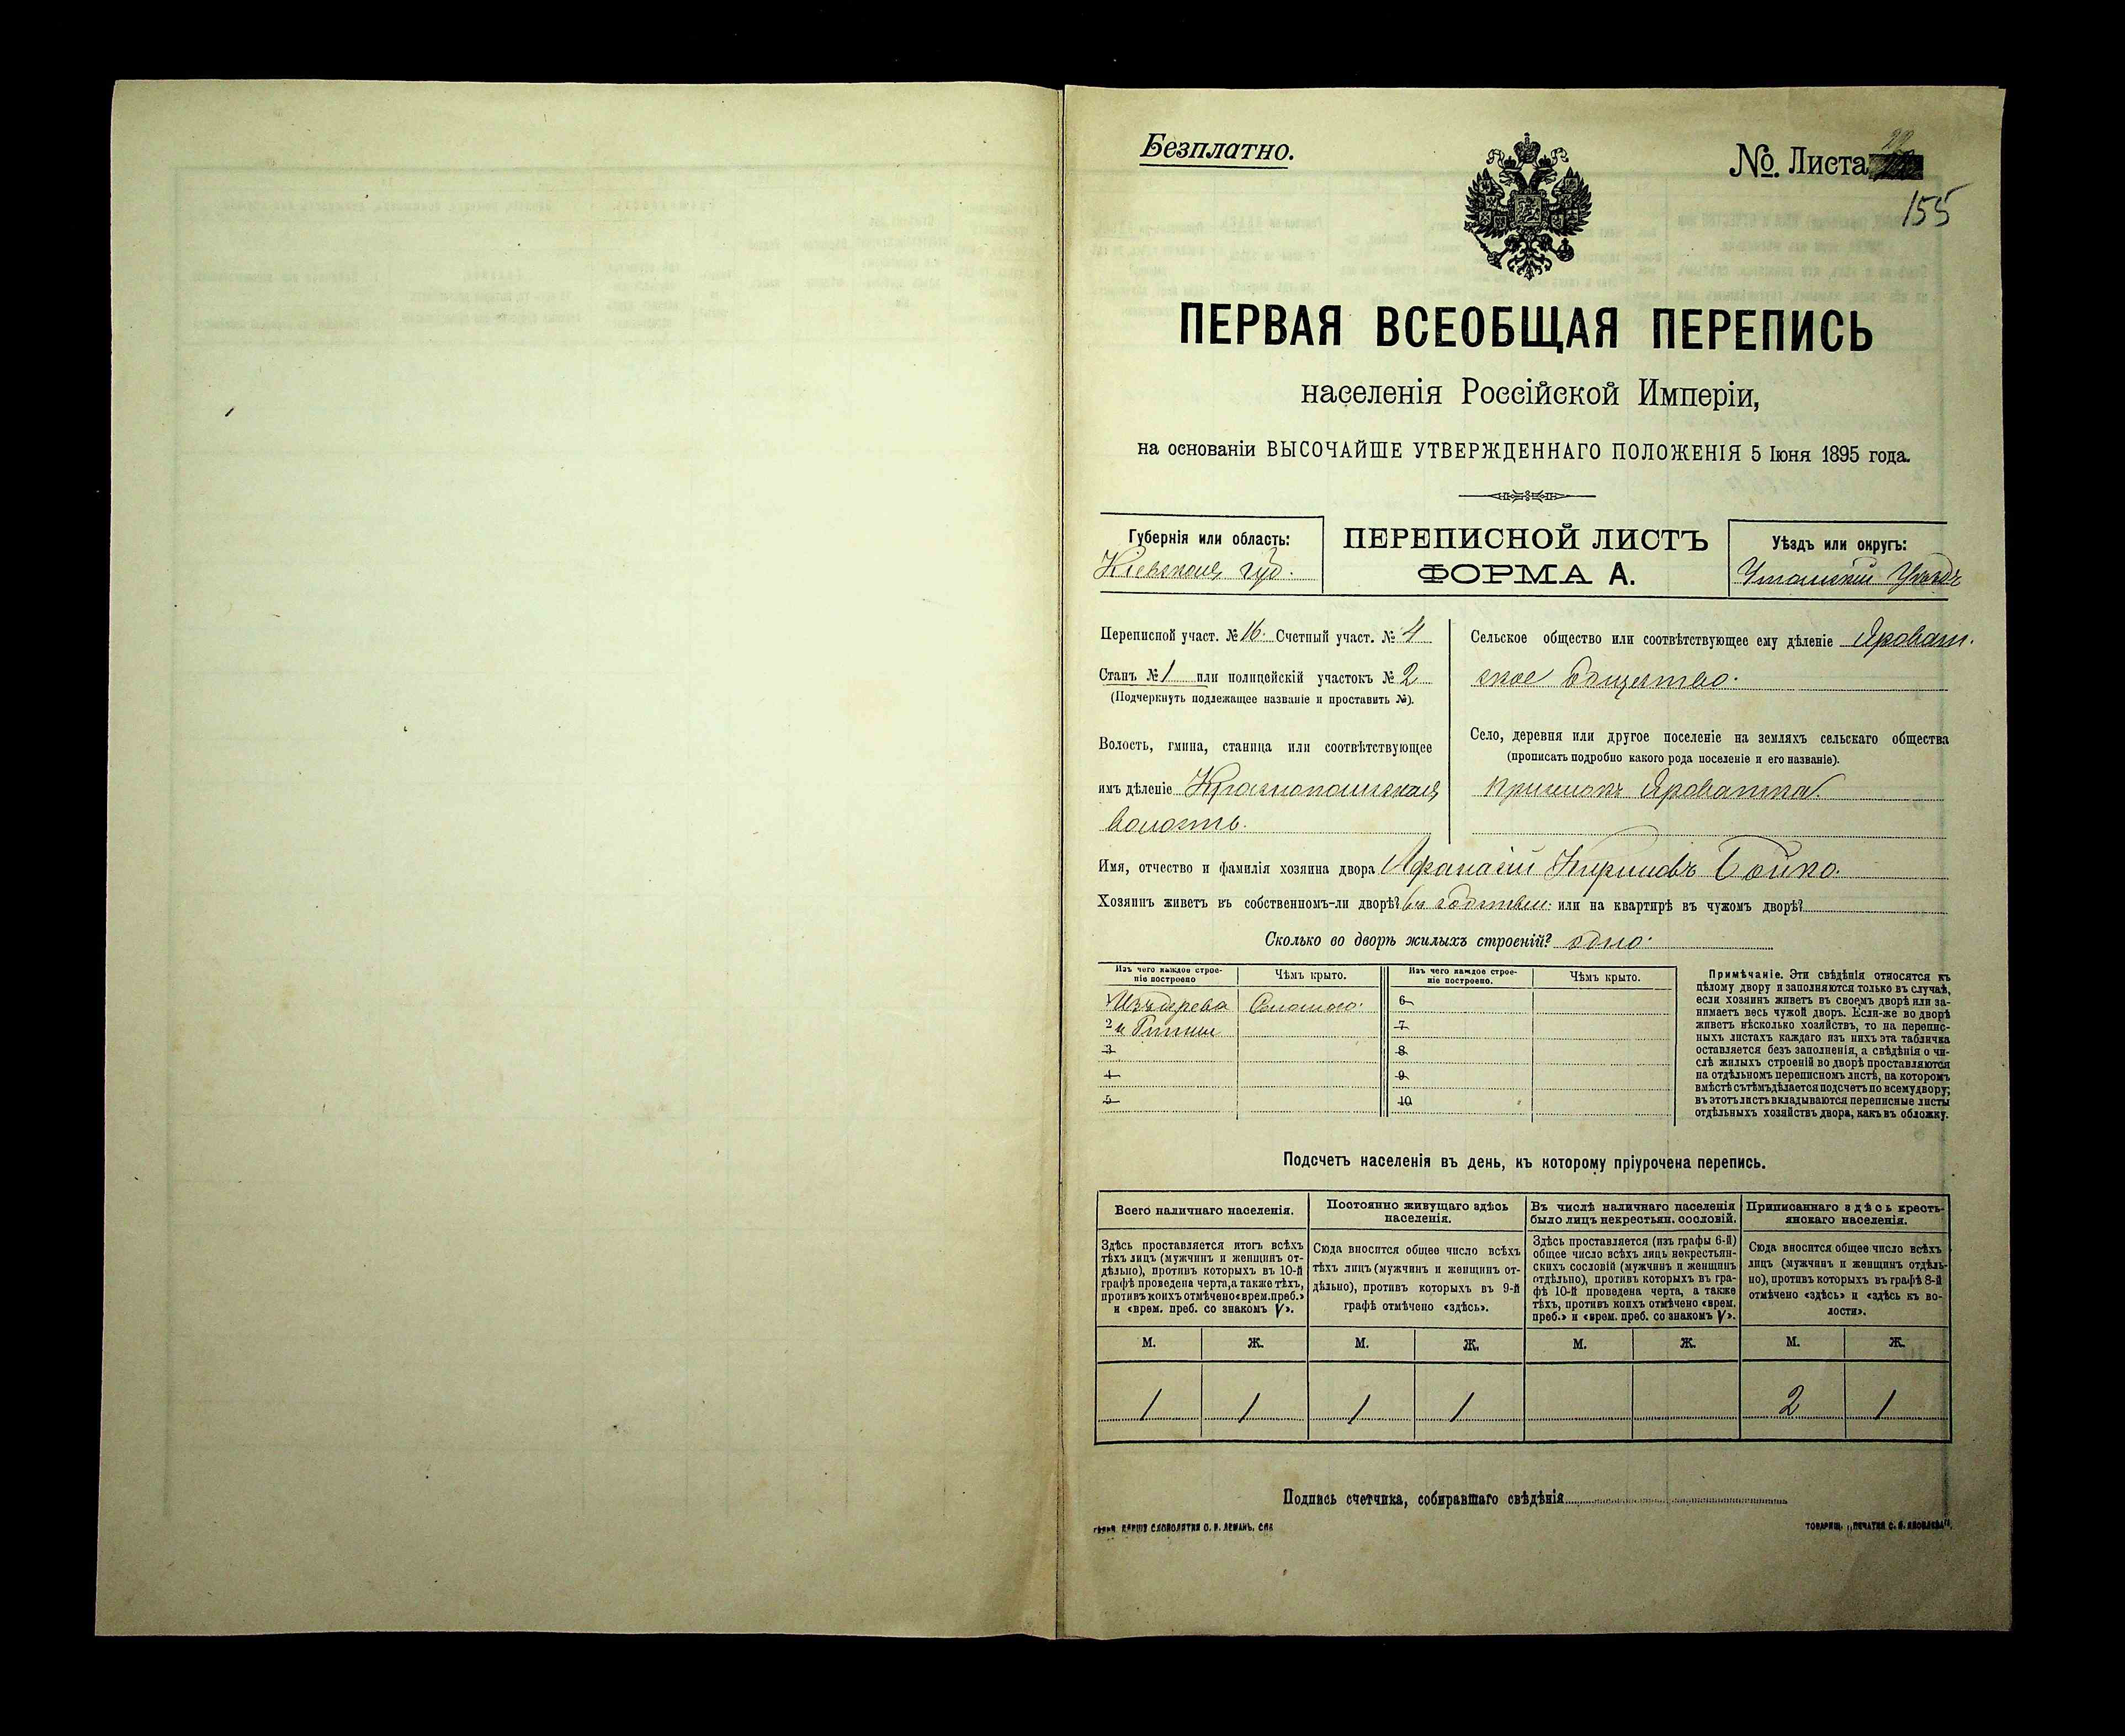 Безплатно.
№. Листа
155
ПЕРВАЯ ВСЕОБЩАЯ ПЕРЕПИСЬ
населенія Россійской Имперіи,
на основаніи ВЫСОЧАЙШЕ УТВЕРЖДЕННАГО ПОЛОЖЕНІЯ 5 Іюня 1895 года.
Губернія или область:
Кіевская губ.
ПЕРЕПИСНОЙ ЛИСТЪ
ФОРМА А.
Уѣздъ или округъ:
Уманскій Уѣздъ
Переписной участ. № 16. Счетный участ. № 4
Станъ № 1 или полицейскій участокъ № 2
(Подчеркнуть подлежащее названіе и проставить №).
Волость, гмина, станица или соотвѣтствующее
имъ дѣленіе Краснопольская
волость.
Сельское общество или соотвѣтствующее ему дѣленіе Яроват.
ское Общество.
Село, деревня или другое поселеніе на земляхъ сельскаго общества
(прописать подробно какого рода поселеніе и его названіе).
Яроватка
Имя, отчество и фамилія хозяина двора Афанасій Кириловъ Бойко.
Хозяинъ живетъ въ собственномъ-ли дворѣ? въ собствен. или на квартирѣ въ чужомъ дворѣ?
Сколько во дворѣ жилыхъ строеній? одно.
Изъ чего каждое строе-
ніе построено
Чѣмъ крыто.
Изъ чего каждое строе-
ніе построено.
Чѣмъ крыто.
1 Изъ дерева Соломою.
2 и Глины
3
4
5
6
7
8
9
10
Примѣчаніе. Эти свѣдѣнія относятся къ
цѣлому двору и заполняются только въ случаѣ,
если хозяинъ живетъ въ своемъ дворѣ или за-
нимаетъ весь чужой дворъ. Если-же во дворѣ
живетъ нѣсколько хозяйствъ, то на перепис-
ныхъ листахъ каждаго изъ нихъ эта табличка
оставляется безъ заполненія, а свѣдѣнія о чи-
слѣ жилыхъ строеній во дворѣ проставляются
на отдѣльномъ переписномъ листѣ, на которомъ
вмѣстѣ съ тѣмъ дѣлается подсчетъ по всему двору;
въ этотъ листъ вкладываются переписные листы
отдѣльныхъ хозяйствъ двора, какъ въ обложку.
Подсчетъ населенія въ день, къ которому пріурочена перепись.
Всего наличнаго населенія.
Здѣсь проставляется итогъ всѣхъ
тѣхъ лицъ (мужчинъ и женщинъ от-
дѣльно), противъ которыхъ въ 10-й
графѣ проведена черта, а также тѣхъ,
противъ коихъ отмѣчено «врем. преб.»
и «врем. преб. со знакомъ V».
Постоянно живущаго здѣсь
населенія.
Сюда вносится общее число всѣхъ
тѣхъ лицъ (мужчинъ и женщинъ от-
дѣльно), противъ которыхъ въ 9-й
графѣ отмѣчено «здѣсь».
Въ числѣ наличнаго населенія
было лицъ некрестьян. сословій.
Здѣсь проставляется (изъ графы 6-й)
общее число всѣхъ лицъ некрестьян-
скихъ сословій (мужчинъ и женщинъ
отдѣльно), противъ которыхъ въ гра-
фѣ 10-й проведена черта, а также
тѣхъ, противъ коихъ отмѣчено «врем.
преб.» и «врем. преб. со знакомъ V».
Приписаннаго здѣсь кресть-
янскаго населенія.
Сюда вносится общее число всѣхъ
лицъ (мужчинъ и женщинъ отдѣль-
но), противъ которыхъ въ графѣ 8-й
отмѣчено «здѣсь» и «здѣсь къ во-
лости».
М. Ж. М. Ж. М. Ж. М. Ж.
1 1 1 1 2 1
Подпись счетчика, собиравшаго свѣдѣнія
ТОВАРИЩ. „ПЕЧАТНЯ С. П. ЯКОВЛЕВА".